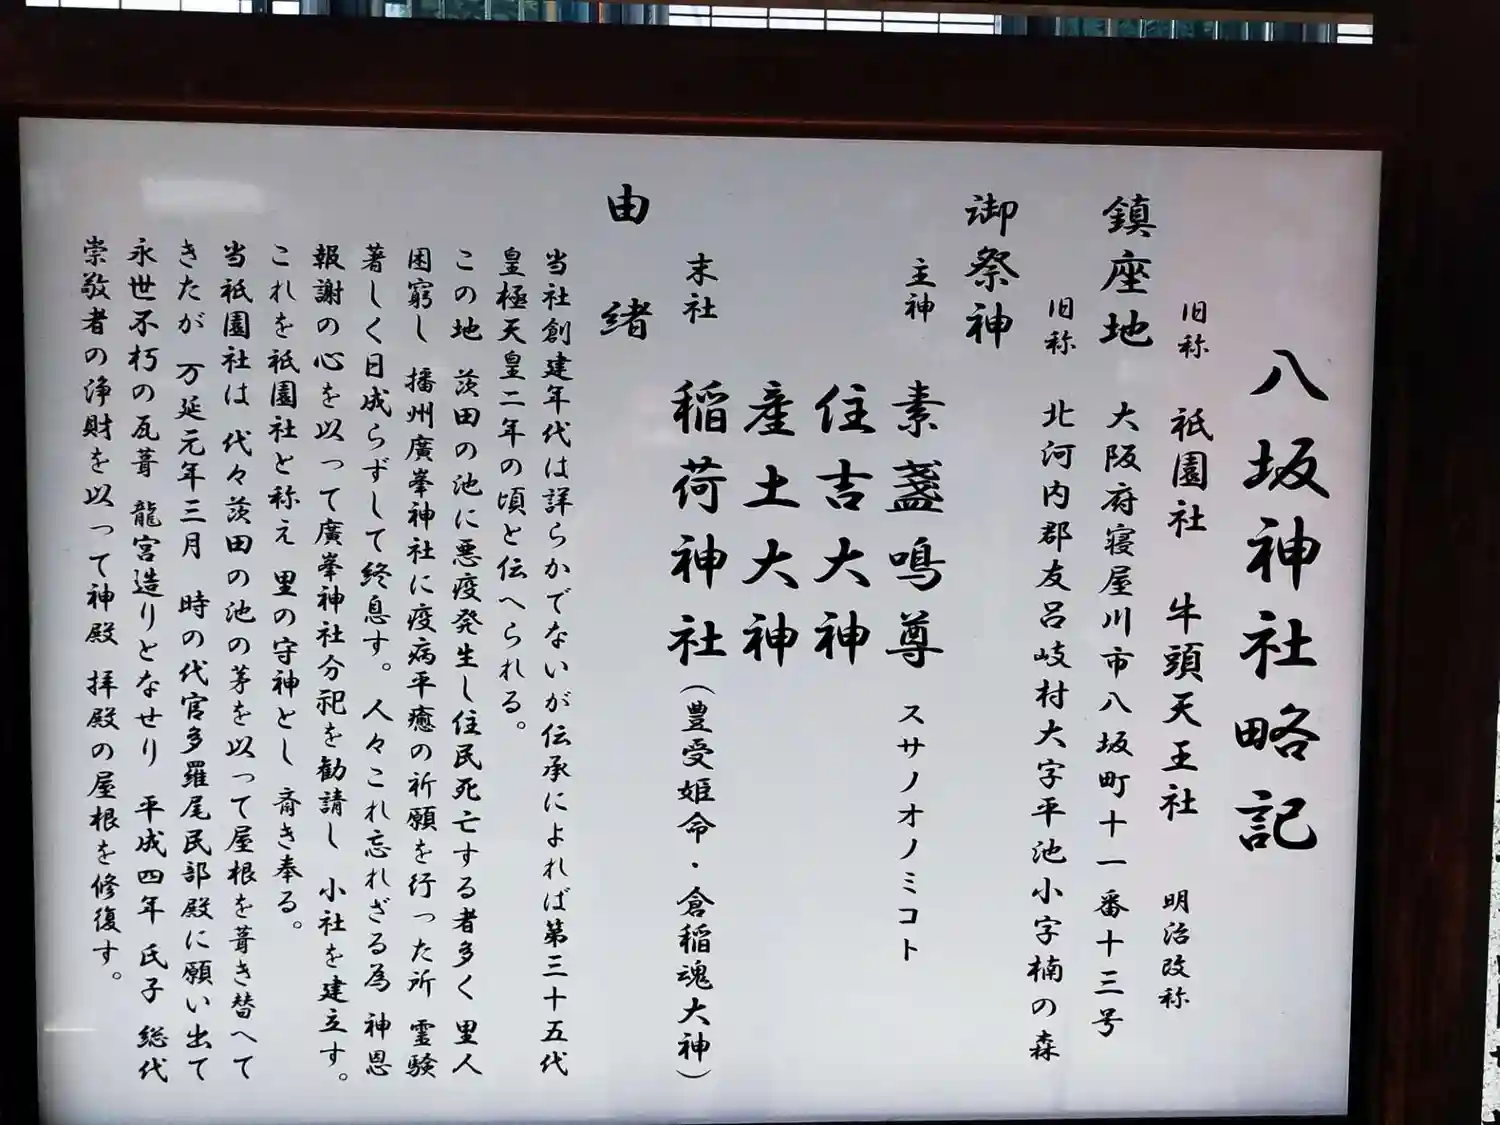 八坂神社略記
旧称 祇園社 牛頭天王社 明治改称
鎮座地 大阪府寝屋川市八坂町十一番十三号
旧称 北河内郡友呂岐村大字平池小字楠の森
御祭神
主神 素盞鳴尊 スサノオノミコト
住吉大神
産土大神
末社 稲荷神社(豊受姫命・倉稲魂大神)
由緒
当社創建年代は詳らかでないが伝承によれば第三十五代
皇極天皇二年の頃と伝へられる。
この地 茨田の池に悪疫発生し住民死亡する者多く里人
困窮し 播州廣峯神社に疫病平癒の祈願を行った所 霊験
著しく日成らずして終息す。人々これ忘れざる為 神恩
報謝の心を以って廣峯神社分祀を勧請し 小社を建立す。
これを祇園社と称え 里の守神とし 斎き奉る。
当祇園社は 代々茨田の池の茅を以って屋根を葺き替へて
きたが 万延元年三月 時の代官多羅尾民部殿に願い出て
永世不朽の瓦葺 龍宮造りとなせり 平成四年 氏子 総代
崇敬者の浄財を以って神殿 拝殿の屋根を修復す。